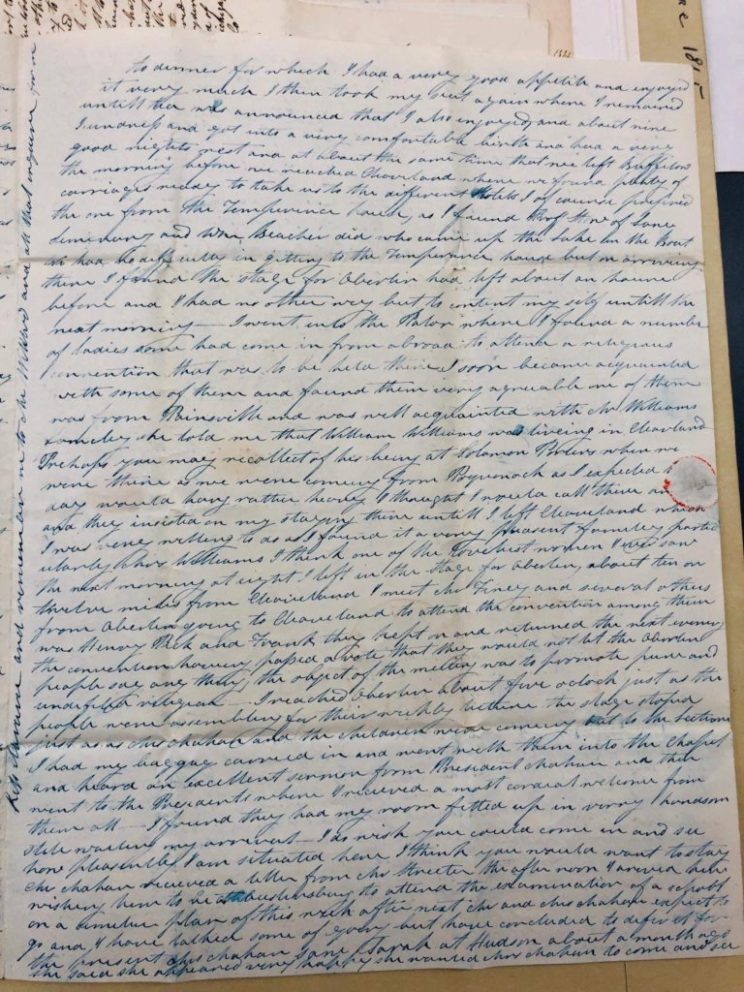 to dinner for which I had a very good appetite and enjoyed
it very much I then took my seat again where I remained
untill tea was announced that I also enjoyed, and about nine
I undress and got into a very comfortable birth and had a very
good nights rest and at about the same time that we left Buffalow
the morning before we reached Cleaveland where we found plenty of
carriages ready to take us to the different Hotels I of course prefered
the one from the Temperince house, as I found Prof of Lane
Seminary and Wm Beacher did who came up the Lake in the Boat
had no dificulty in gitting to the Temperance house but on arriving
there I found the stage for Oberlin had left about an houre
before and I had no other way but to content my self untill the
next morning — I went into the Parlor where I found a number
of ladies some had come in from abroad to attend a religious
convention that was to be held there I soon became acquainted
with some of them and found them very agreeable one of them
was from Painsville and was well acquainted with Mr Williams
family she told me that William Williams was liveing in Cleaveland
Perhaps you may recollect of his being at Solomon when we
were there as we were coming from as I expected the
day would hang rather heavy I thought I would call there and
and they insisted on my staying there untill I left Cleaveland which
I was very willing to do as I found it a very pleasent famely partic
ularly Mrs Williams I think one of the loveliest women I ever saw
the next morning at eight I left in the stage for Oberlin, about ten or
twelve miles from Cleaveland I meet Mr Finey and several others
from Oberlin going to Cleaveland to attend the convention among them
was Henry Peck and Frank they kept on and returned the next evening
the convention having passed a vote that they would not let the Oberlin
people say any thing, the object of the meeting was to promote pure and
undefiled religion — I reached Oberlin about five oclock just as the
people were assembling for their weekly lecture the stage stoped
just as Mrs Mahan and the children were coming out to the lecture
I had my baggag carried in and went with them into the Chapel
and heard an excellent sermon from President Mahan and then
went to the Presidents where I recieved a most cordial welcome from
them all — I found they had my room fitted up in very handsom
stile waiting my arrival — I do wish you could come in and see
how pleasently I am situated here I think you would want to stay
Mr Mahan recieved a letter from Mr Streeter the after noon I arived here
wishing him to be at to attend the examination of a school
on a similar plan of this week after next Mr and Mrs Mahan expect to
go and I have talked some of going but have concluded to defer it for
the present Mrs Mahan saw Sarah at Hudson about a month ago
she said she appeared very happy she wanted Mrs Mahan to come and see
and remember me to Mr and all that enquire for me
1815